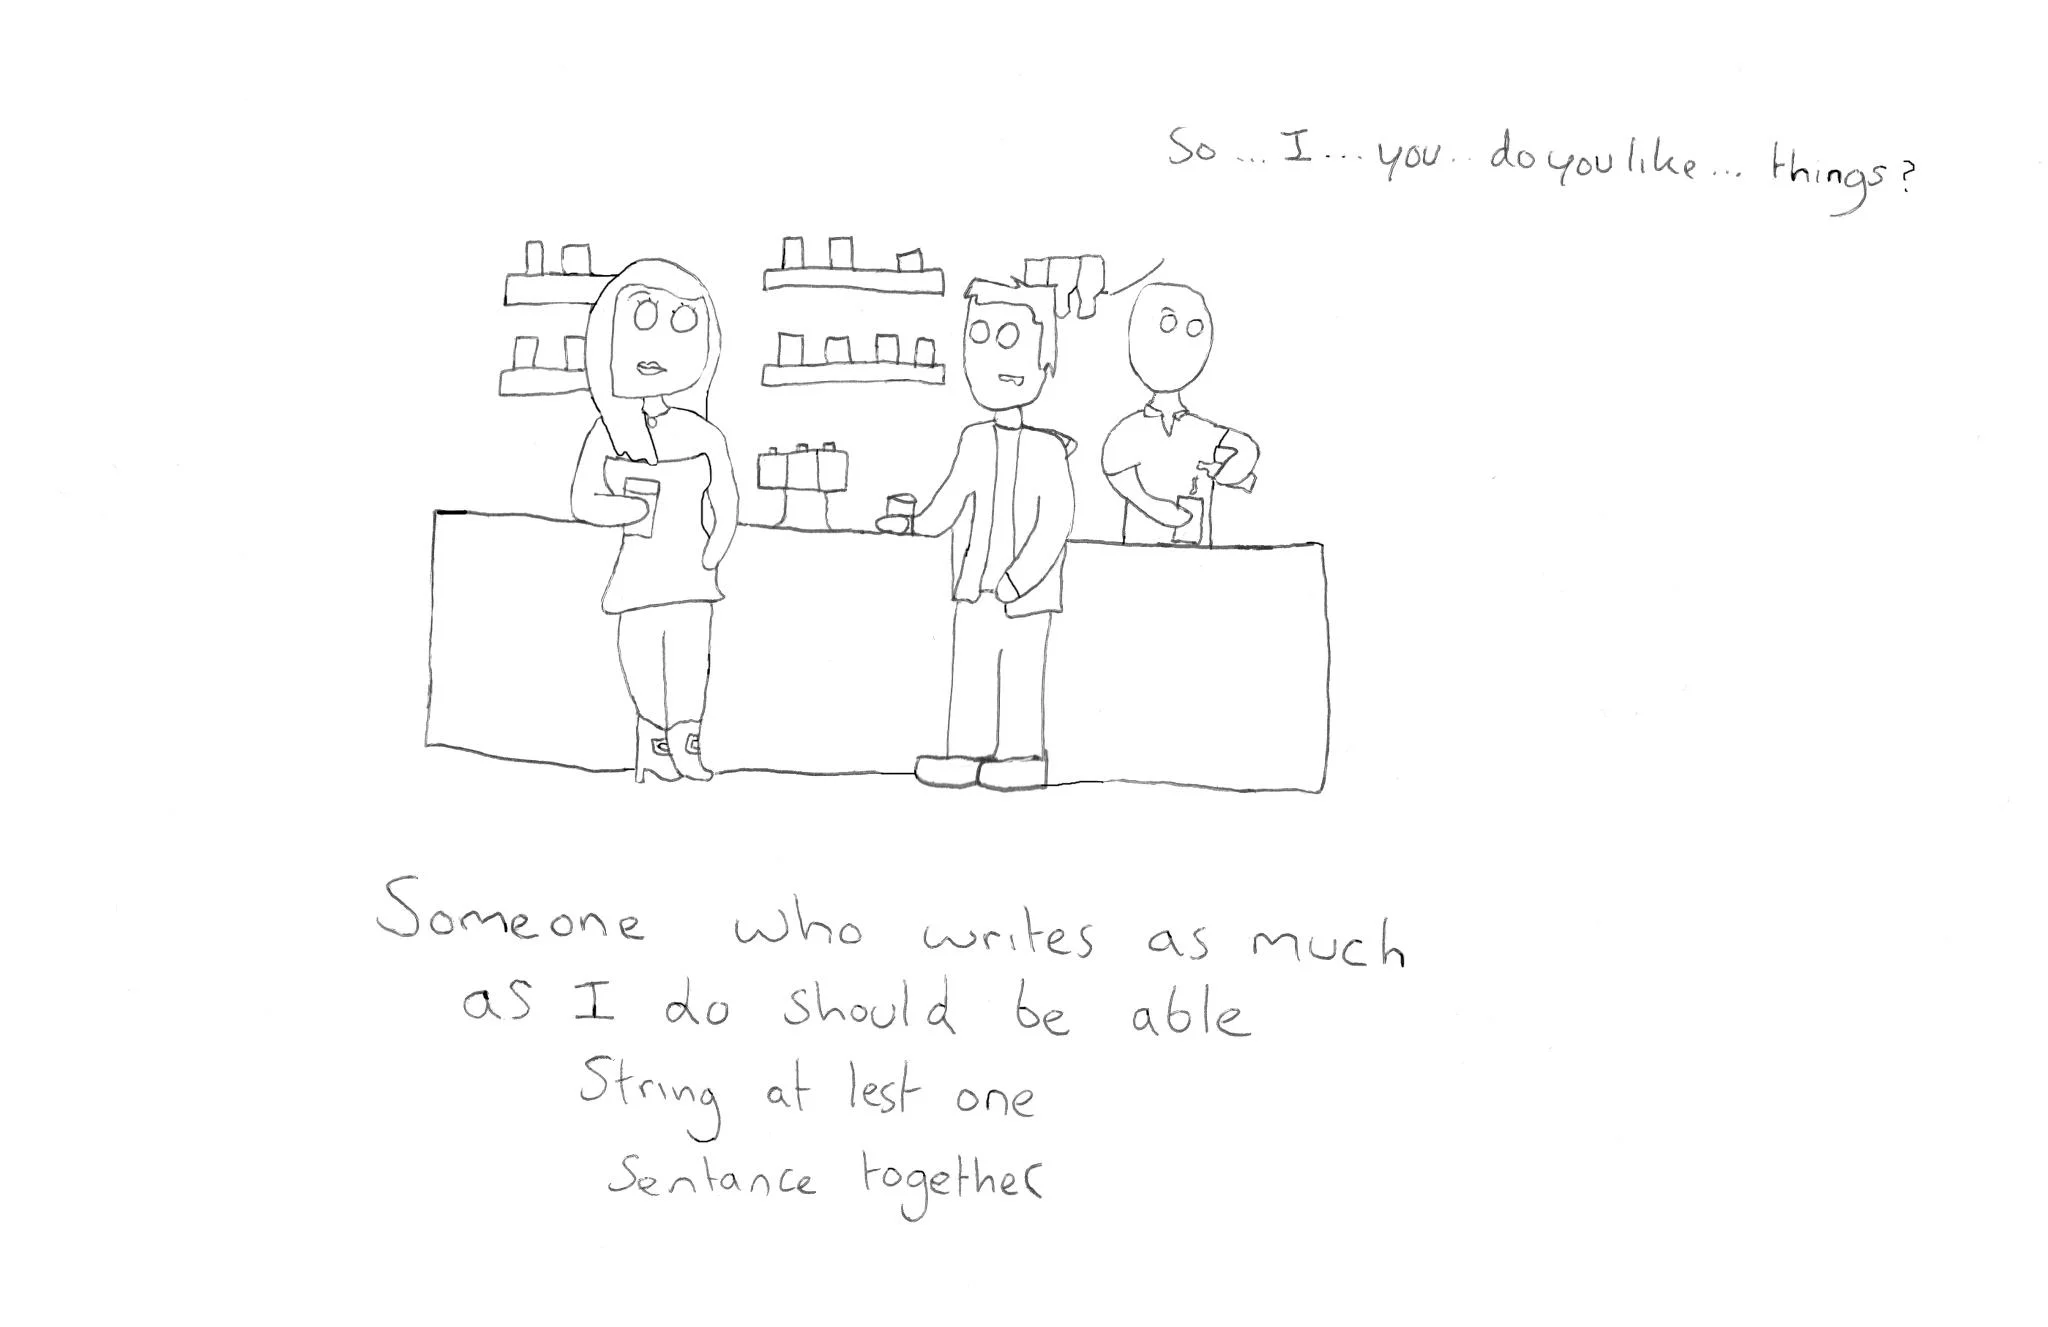 So ... I ... you .. do you like ... things?
Someone who writes as much
as I do should be able
String at lest one
Sentance together